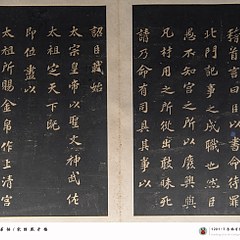 稽首言曰臣以書命待罪
北門記事之成職也然臣
愚不知宮之所以廢興與
凡材用之所從出敢昧死
請乃命有司具其事以
詔臣軾始
太宗皇帝以聖文神武佐
太祖定天下既
即位盡以
太祖所賜金帛作上清宮